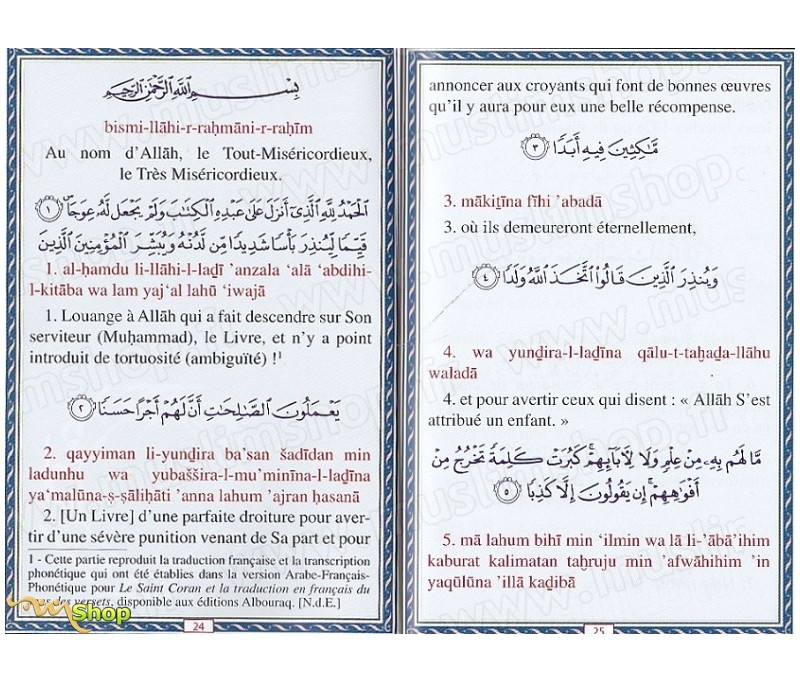 بِسْمِ اللَّهِ الرَّحْمَٰنِ الرَّحِيمِ
bismi-llāhi-r-raḥmāni-r-raḥīm
Au nom d’Allāh, le Tout-Miséricordieux,
le Très Miséricordieux.
الْحَمْدُ لِلَّهِ الَّذِي أَنزَلَ عَلَىٰ عَبْدِهِ الْكِتَٰبَ وَلَمْ يَجْعَل لَّهُ عِوَجَا ١
قَيِّمًا لِّيُنذِرَ بَأْسًا شَدِيدًا مِّن لَّدُنْهُ وَيُبَشِّرَ الْمُؤْمِنِينَ الَّذِينَ
1. al-ḥamdu li-llāhi-l-laḏī ’anzala ‘alā ‘abdihi-
l-kitāba wa lam yaj‘al lahū ‘iwajā
1. Louange à Allāh qui a fait descendre sur Son
serviteur (Muḥammad), le Livre, et n’y a point
introduit de tortuosité (ambiguïté) !¹
يَعْمَلُونَ الصَّٰلِحَٰتِ أَنَّ لَهُمْ أَجْرًا حَسَنًا ٢
2. qayyiman li-yunḏira ba’san šadīdan min
ladunhu wa yubaššira-l-mu’minīna-l-laḏīna
ya‘malūna-ṣ-ṣāliḥāti ’anna lahum ’ajran ḥasanā
2. [Un Livre] d’une parfaite droiture pour aver-
tir d’une sévère punition venant de Sa part et pour
1 - Cette partie reproduit la traduction française et la transcription
phonétique qui ont été établies dans la version Arabe-Français-
Phonétique pour Le Saint Coran et la traduction en français du
des versets, disponible aux éditions Albouraq. [N.d.E.]
Shop
24
annoncer aux croyants qui font de bonnes œuvres
qu’il y aura pour eux une belle récompense.
مَّٰكِثِينَ فِيهِ أَبَدًا ٣
3. mākiṯīna fīhi ’abadā
3. où ils demeureront éternellement,
وَيُنذِرَ الَّذِينَ قَالُوا اتَّخَذَ اللَّهُ وَلَدًا ٤
4. wa yunḏira-l-laḏīna qālu-t-taḫaḏa-llāhu
waladā
4. et pour avertir ceux qui disent : « Allāh S’est
attribué un enfant. »
مَّا لَهُم بِهِ مِنْ عِلْمٍ وَلَا لِآبَائِهِمْ كَبُرَتْ كَلِمَةً تَخْرُجُ مِنْ
أَفْوَٰهِهِمْ إِن يَقُولُونَ إِلَّا كَذِبًا ٥
5. mā lahum bihī min ‘ilmin wa lā li-’ābā’ihim
kaburat kalimatan taḫruju min ’afwāhihim ’in
yaqūlūna ’illā kaḏibā
25